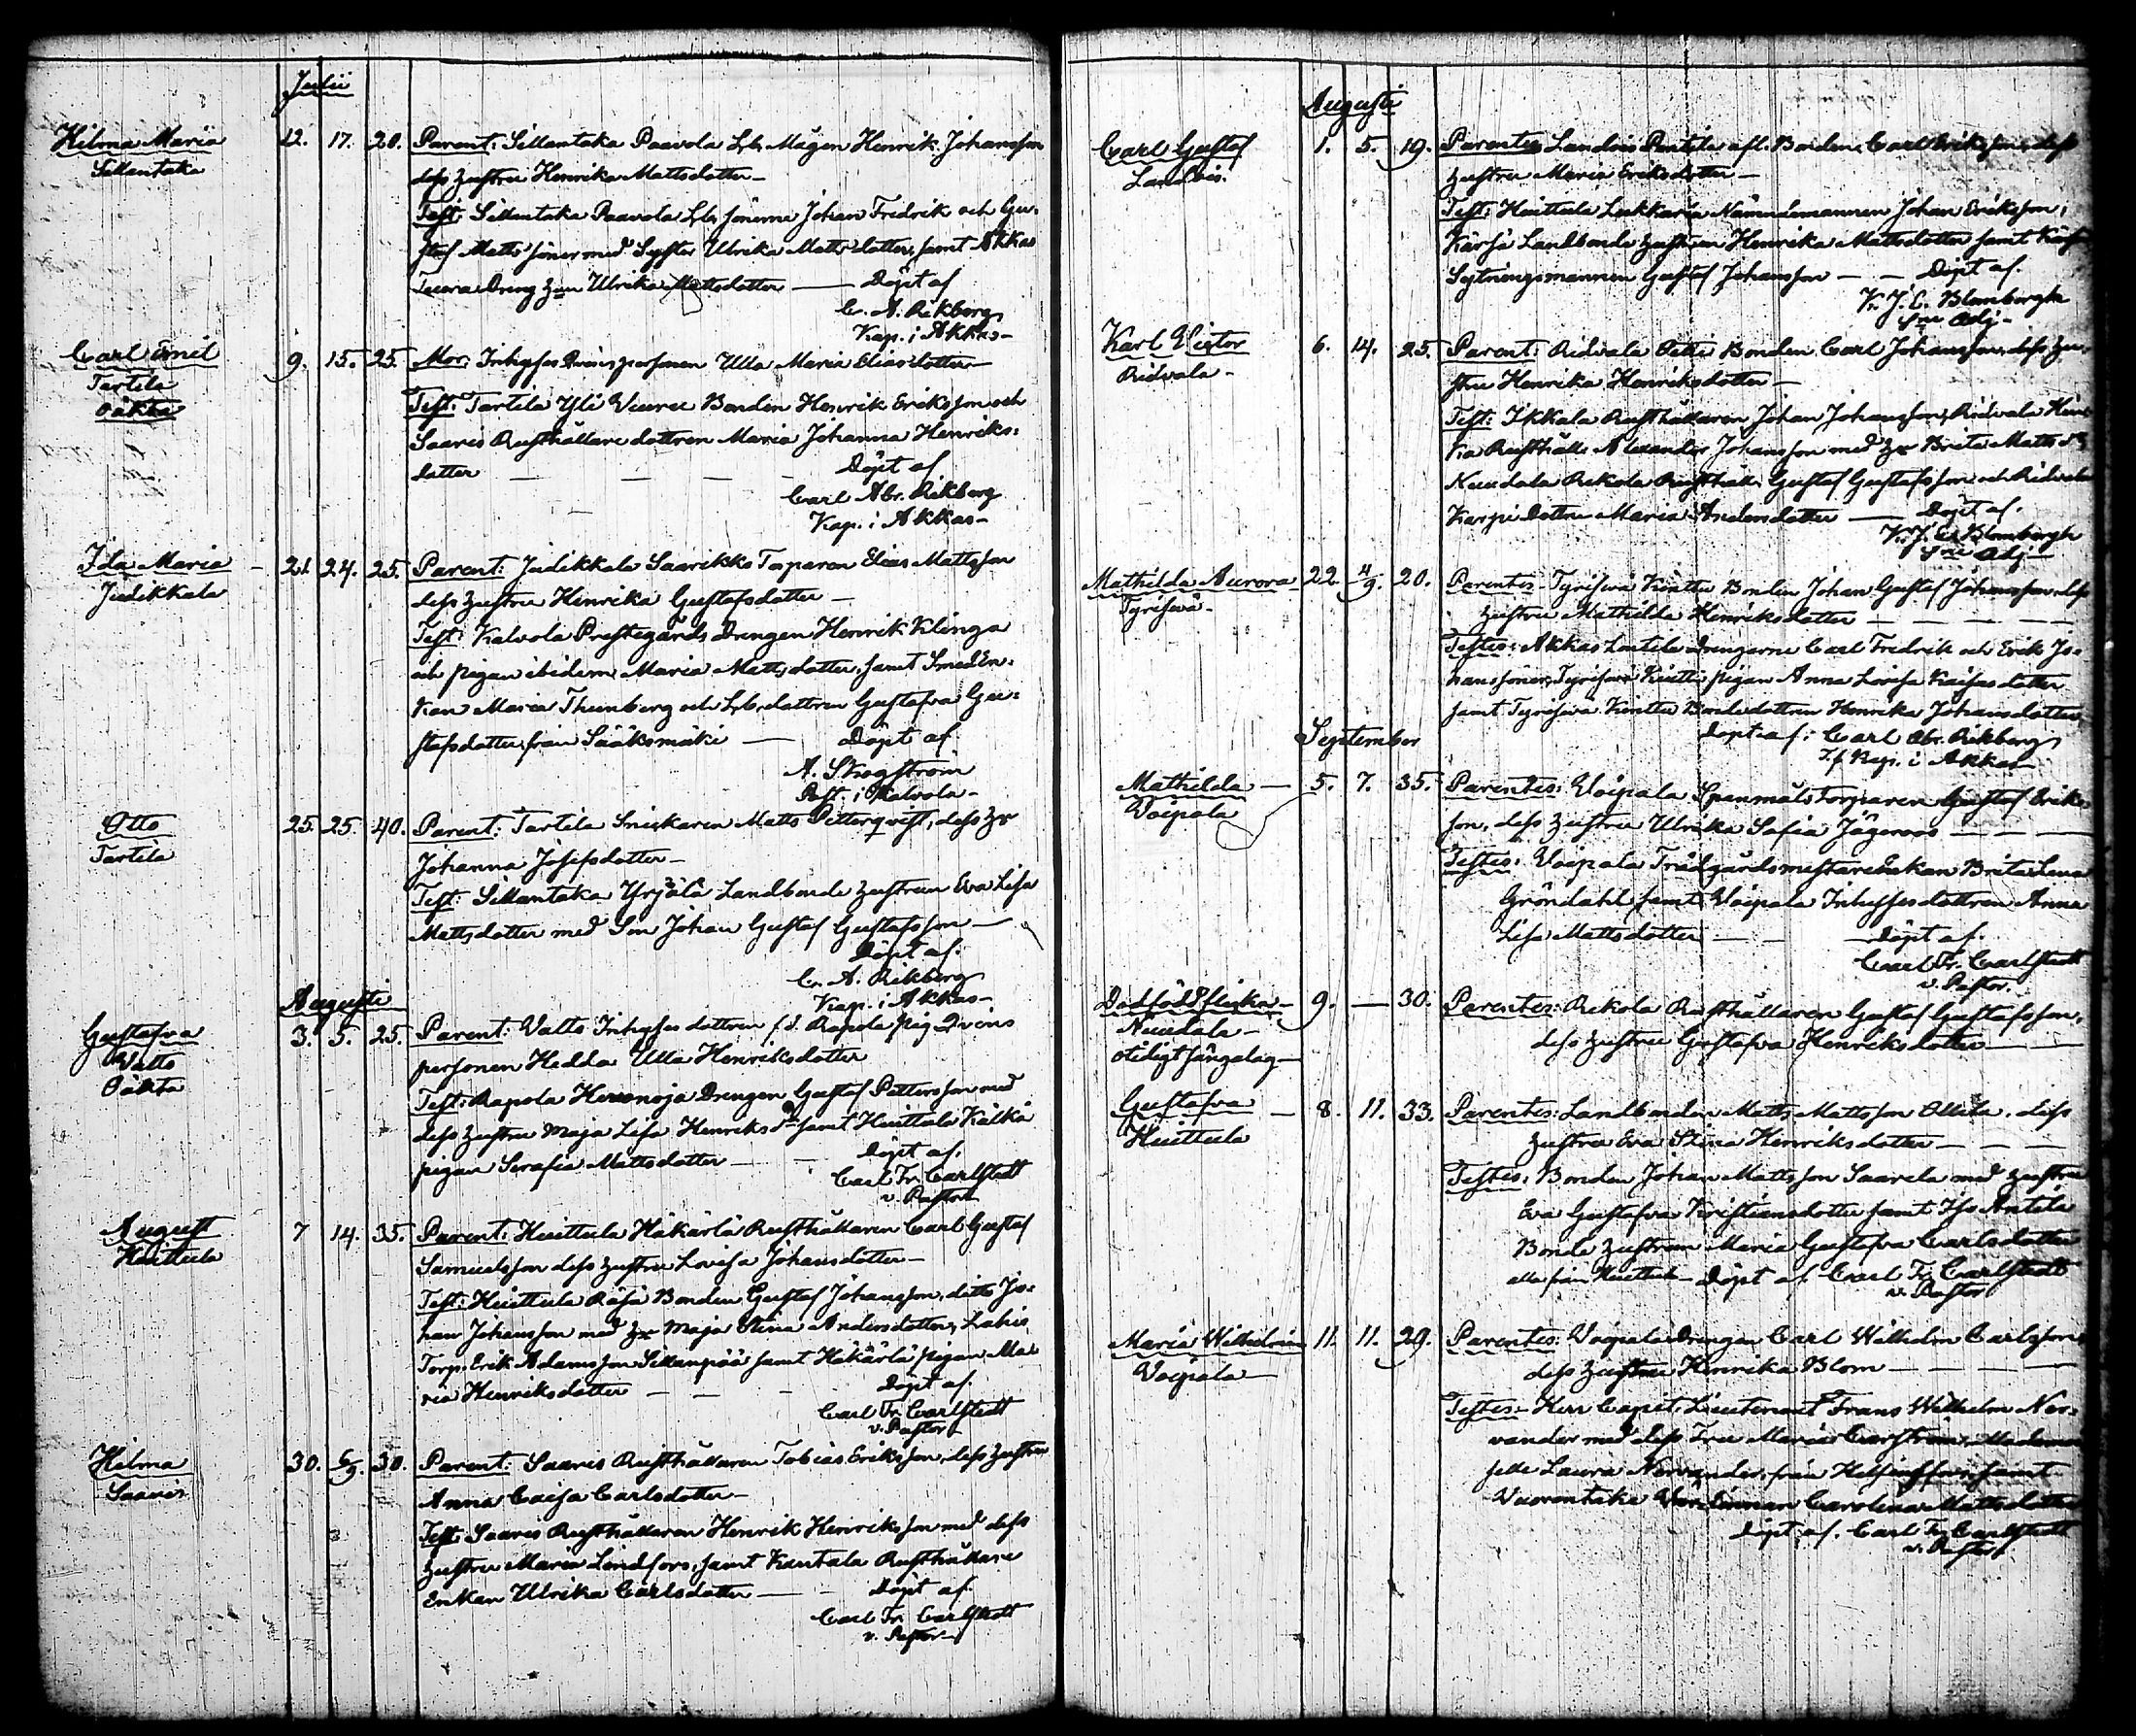 Julii
Hilma Maria 12. 17. 20. Parent: Sillantaka Paavola Lb. Mågen Henrik Johansson
Sillantaka dess hustru Henrika Mattsdotter –
Test: Sillantaka Paavola Lb. sönerna Johan Fredrik och Gu-
staf Matts söner med Syster Ulrika Mattsdotter, samt Akkas
Dreng Ulrika Mattsdotter — Döpt af
C. A. Rikberg
Kap. i Akkas –
Carl Emil 9. 15. 25. Mor: Inhyses Qvinspersonen Ulla Maria Eliasdotter
Tarttila Test: Tarttila Yli Bonden Henrik Eriksson och
Oäkta Saaris Rusthållare dottren Maria Johanna Henriks-
dotter — — — Döpt af
Carl Abr. Rikberg
Kap. i Akkas –
Ida Maria – 21. 24. 25. Parent: Judikkala Saarikko Torparen Elias Mattsson
Judikkala dess hustru Henrika Gustafsdotter –
Test: Kalvola Prestegårds Drengen Henrik Klinga
och pigan ibidem Maria Mattsdotter, samt SmedEn-
kan Maria Thunberg och Lb. dottren Gustafva Gu-
stafsdotter från Sääksmäki — Döpt af
A. Skogström
Past. i Kalvola –
Otto 25. 25. 40. Parent: Tarttila Snickaren Matts Petterqvist, dess hu
Tarttila Johanna Josefsdotter –
Test: Sillantaka Yrjölä Landbonde hustrun Eva Lisa
Mattsdotter med Son Johan Gustaf Gustafsson –
Döpt af.
C. A. Rikberg
Kap. i Akkas –
Augusti
Gustafva 3. 5. 25. Parent: Valto Inhyses dottren f.d. Rapola pig Qvins
Valto personen Hedda Ulla Henriksdotter
Oäkta Test: Rapola Drengen Gustaf Pettersson med
dess hustru Maja Lisa Henriksdr samt Huittula
pigan Serafia Mattsdotter — Döpt af.
Carl Fr. Carlstedt
v. Pastor
August 7 14. 35. Parent: Huittula Häkärlä Rusthållaren Carl Gustaf
Huittula Samuelsson dess hustru Lovisa Johansdotter –
Test: Huittula Bonden Gustaf Johansson, ditto Jo-
han Johansson med hu Maja Stina Andersdotter, Lahis
Torp. Erik Adamsson Sillanpää samt Häkärlä pigan Ma-
ria Henriksdotter — — Döpt af
Carl Fr. Carlstedt
v. Pastor
Hilma 30. 6/9. 30. Parent: Saaris Rusthållaren Tobias Eriksson, dess hustru
Saaris Anna Caisa Carlsdotter –
Test: Saaris Rusthållaren Henrik Henriksson med dess
hustru Maria Lindfors, samt Kantala Rusthållare
Enkan Ulrika Carlsdotter — Döpt af
Carl Fr. Carlstedt
v. Pastor
Augusti
Carl Gustaf 1. 5. 19. Parentes Landbonden Carl Eriksson, dess
hustru Maria Eriksdotter –
Test: Huittula Nämndemannen Johan Eriksson,
Landbonde hustrun Henrika Mattsdotter samt
Sytningsmannen Gustaf Johansson — — Döpt af.
K. J. C. Blombergh
Adj –
Karl Victor 6. 14. 25. Parent: Ridvala Bonden Carl Johansson, dess hu-
Ridvala – stru Henrika Henriksdotter –
Test: Ikkala Rusthållaren Johan Johansson, Ridvala
Rusthåll. Alexander Johansson med hu Brita Matts dr
Rekola Rusthåll. Gustaf Gustafsson och Ridvala
Dottren Maria Andersdotter — Döpt af.
K. J. C. Blombergh
Adj –
Mathilda Aurora 22. 4/9. 20. Parentes Bonden Johan Gustaf Johansson, dess
hustru Mathilda Henriksdotter — — — —
Testes: Akkas drengarne Carl Fredrik och Erik Jo-
hanssöner, pigan Anna Lovisa
samt Bondedottren Henrika Johansdotter
September Döpt af: Carl Abr. Rikberg
T.f. Kap. i Akkas
Mathilda — 5. 7. 35. Parentes: Voipala Spanmåls Torparen Gustaf Eriks-
Voipala son, dess hustru Ulrika Sofia Jägeroos — — —
Testes: Voipala Trädgårdsmestareenkan Brita Lena
Gröndahl samt Voipala Inhysesdottren Anna
Lisa Mattsdotter — — Döpt af.
Carl Fr. Carlstedt
v. Pastor
Dödfödd flicka – 9. — 30. Parentes: Rekola Rusthållaren Gustaf Gustafsson,
dess hustru Gustafva Henriksdotter — —
otidigt sängelag –
Gustafva — 8. 11. 33. Parentes: Landbonden Matts Mattsson Ollila, dess
Huittula hustru Eva Stina Henriksdotter — — —
Testes: Bonden Johan Mattsson Saarela med hustru
Eva Gustafva Kristiansdotter samt Iso Antila
Bonde hustrun Maria Gustafva Carlsdotter
alla från Huittula – Döpt af. Carl Fr. Carlstedt
v. Pastor
Maria Wilhelmina 11. 11. 29. Parentes: Voipala Drengen Carl Wilhelm Carlsson
Voipala – dess hustru Henrika Blom — — —
Testes: Herr Capit. Lieutenant Frans Wilhelm Ner-
vander med dess Fru Maria Mademoi-
selle Laura Nervander från Helsingfors, samt
Carolina Mattsdotter
Döpt af. Carl Fr. Carlstedt
v. Pastor